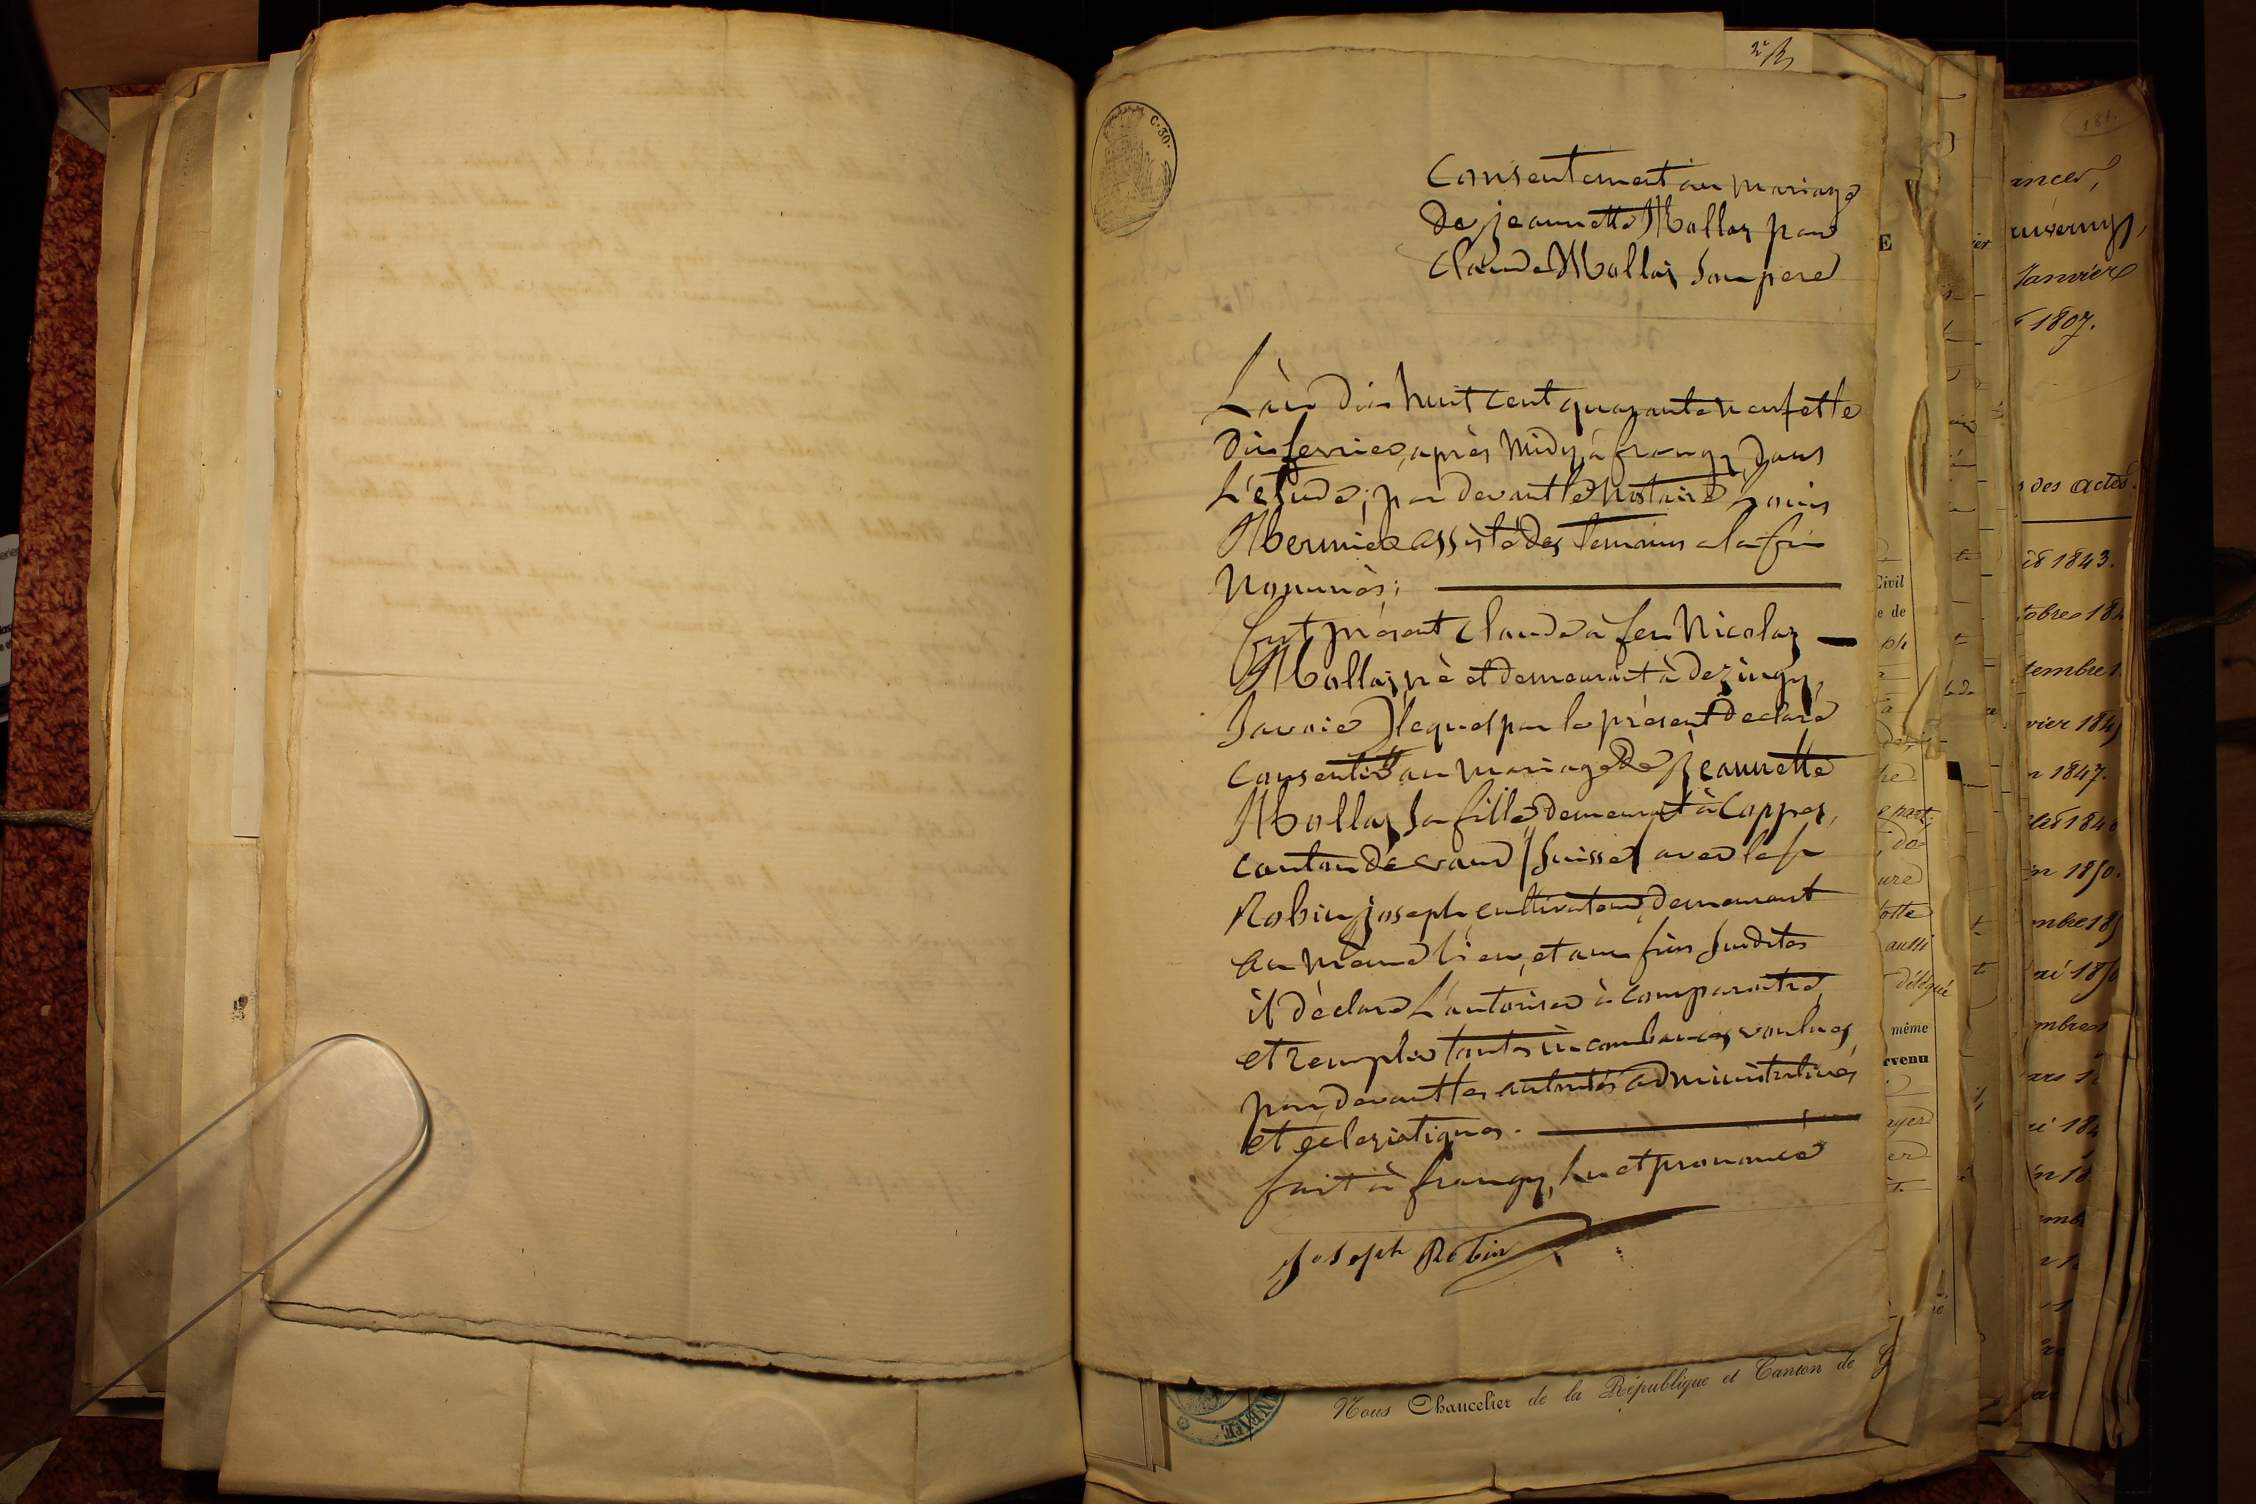 C. 30.
Consentement au mariage
de jeannette Mollaz par
Claude Mollaz son pere
L'an dix huit cent quarante neuf et le
dix fevrier, après midy, à frangy, dans
L'etude; par devant le notaire
assisté des temoins a la fin
nommés;
fut présent Claude à feu Nicolaz
Mollaz né et demeurant à dezingy,
Savoie) lequel par le présent déclare
consentir au mariage de Jeannette
Mollaz sa fille, demeurant à Coppez,
canton de vaud (Suisse) avec le sr
Robin joseph, cultivateur, demeurant
au même lieu, et aux fins susdites
il déclare L'autoriser à comparaitre,
et remplir toutes incombances voulues
par devant les autorités administratives
et eclesiatiques.
fait à frangy, lu et prononcé
Joseph Robin
Nous Chancelier de la République et Canton de G
E
Civil
e de
ph
aussi
délégué
même
rvenu
181.
Janvier
1807.
des actes.
1843.
obre 184
tembre 1
vier 184
1847.
184
in 1850.
mbre 18
ai 1850
mbre